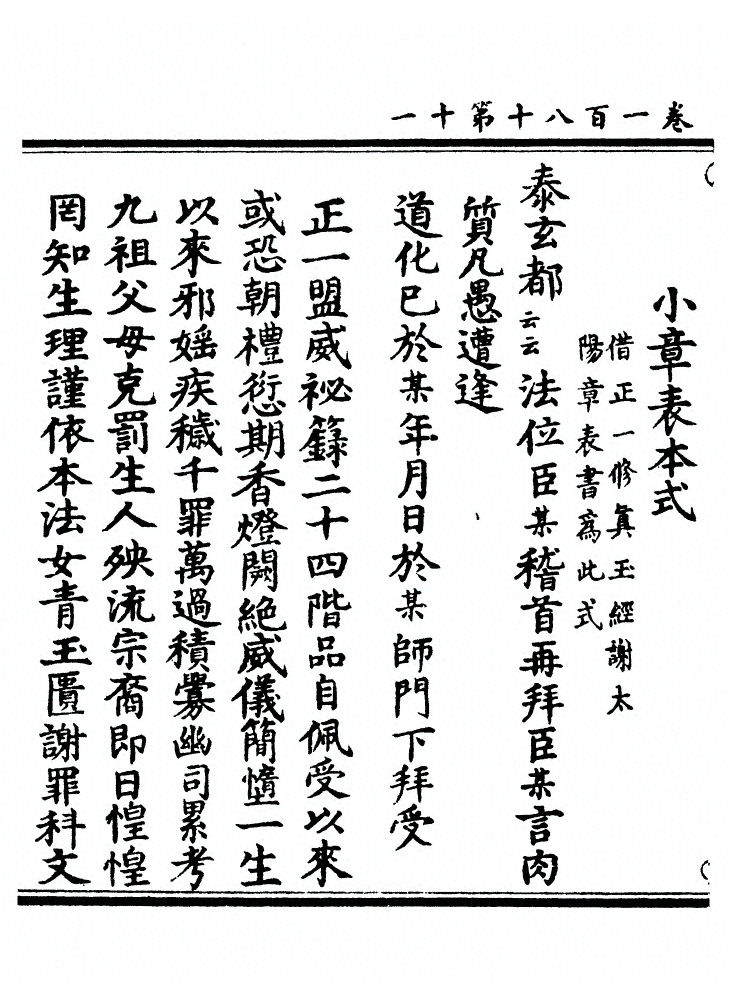 卷一百八十第十一
小章表本式
借正一修眞玉經謝太
陽章表書爲此式
泰玄都云云法位臣某稽首再拜臣某言肉
質凡愚遭逢
道化已於某年月日於某師門下拜受
正一盟威祕籙二十四階品自佩受以來
或恐朝禮愆期香燈闕絶威儀簡墮一生
以來邪婬疾穢千罪萬過積釁幽司累考
九祖父母克罰生人殃流宗裔即日惶惶
罔知生理謹依本法女青玉匱謝罪科文